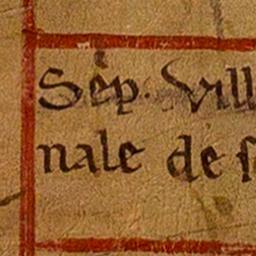 Sep. vill
nale de s